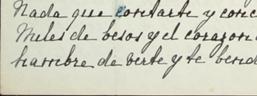 Nada que contarte y conc
Miles de besos y el corazon
hambre de verte y te bend